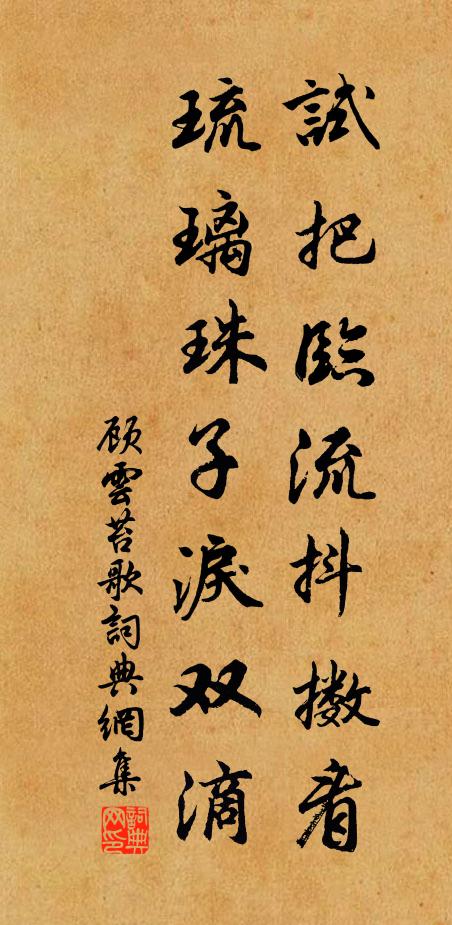 試把臨流抖擻看
琉璃珠子淚双滴
顾雲苔歌詞典網集
詞典網印